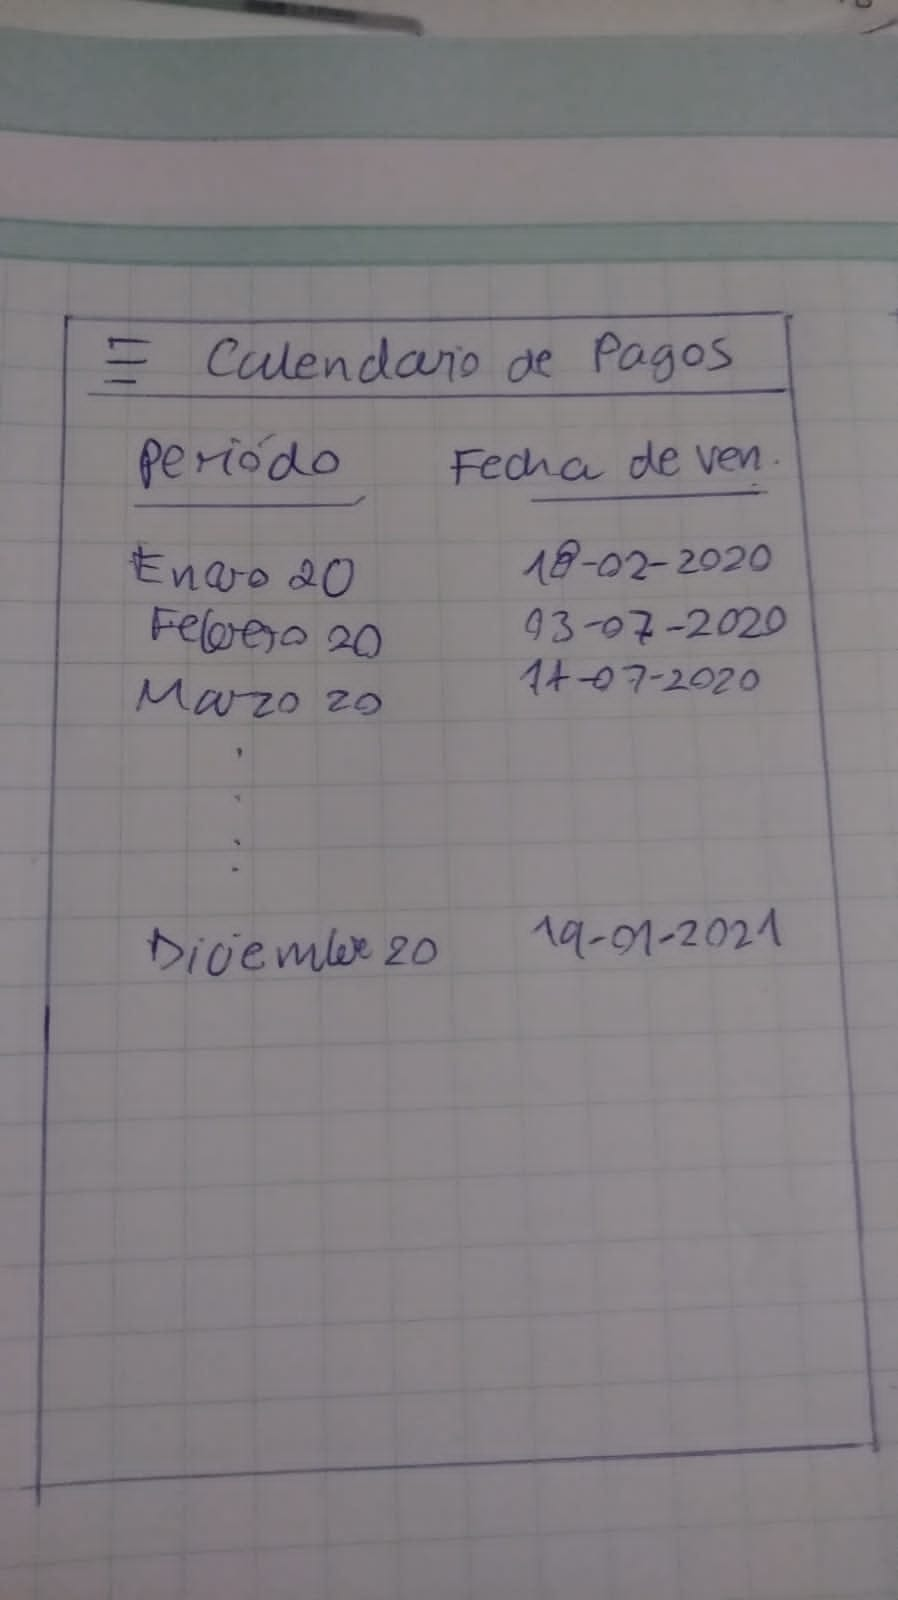 Calendario de Pagos
Periódo Fecha de ven.
Enero 20 18-02-2020
Febrero 20 03-07-2020
Marzo 20 17-07-2020
Diciembre 20 19-01-2021